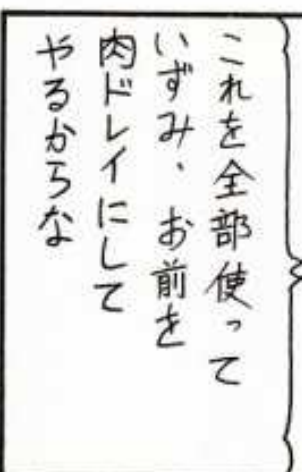 これを全部使って
いずみ、お前を
肉ドレイにして
やるからな